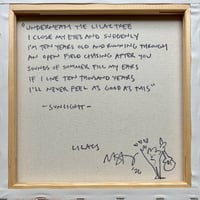 "UNDERNEATH THE LILAC TREE
I CLOSE MY EYES AND SUDDENLY
I'M TEN YEARS OLD AND RUNNING THROUGH
AN OPEN FIELD CHASING AFTER YOU
SOUNDS OF SUMMER FILL MY EARS
IF I LIVE TEN THOUSAND YEARS
I'LL NEVER FEEL AS GOOD AS THIS"
- SUNLIGHT -
LILACS